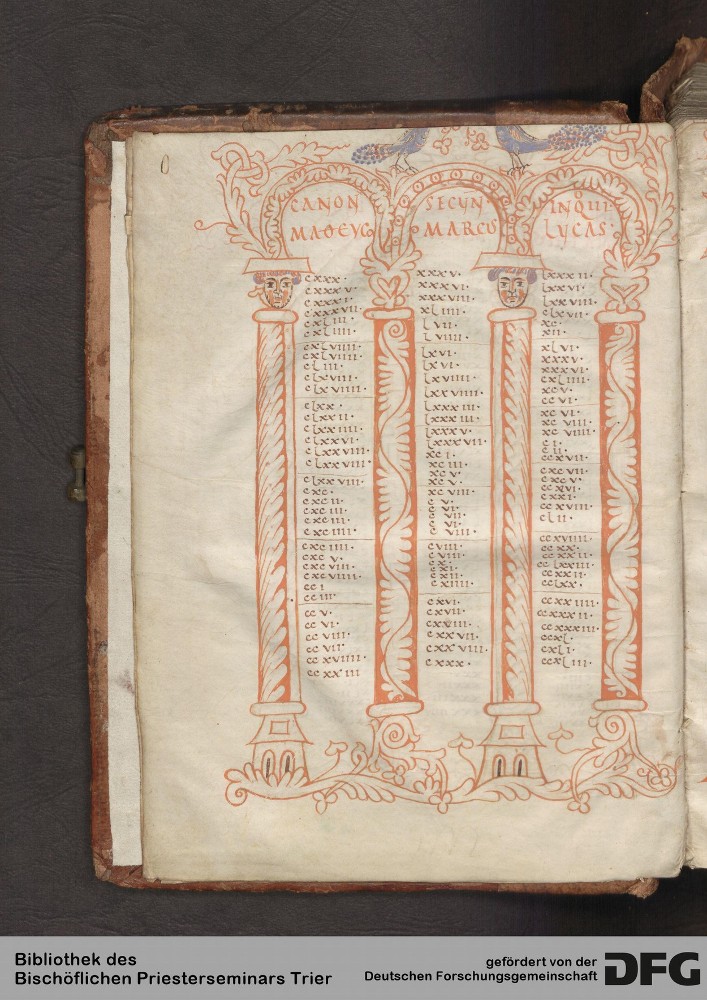 CANON SECUN· IN QUI
MARCUS LUCAS·
cxxx·
cxxxv·
cxxxvii·
cxliii·
cxliiii·
cxlviiii·
cxlviiii·
cliii·
clxviii·
clxviiii·
clxx·
clxxii·
clxxiiii·
clxxvi·
clxxviii·
clxxviiii·
clxxviiii·
cxc·
cxcii·
cxciii·
cxciii·
cxciiii·
cxciiii·
cxcv·
cxcviii·
cxcviiii·
cci
cciii·
ccv·
ccvi·
ccviii·
ccvii·
ccxviiii·
ccxxiii
xxxv·
xxxvi·
xxxviii·
xliiii·
lvii·
lviiii·
lxvi·
lxvi·
lxviiii·
lxxviiii·
lxxxiii·
lxxxiii·
lxxxv·
lxxxvii·
xci·
xciii·
xcv·
xcv·
xcviii·
cv·
cvi·
cvii·
cvi·
cviii·
cviii·
cviii·
cx·
cxi·
cxii·
cxiiii·
cxvi·
cxvii·
cxxiii·
cxxvii·
cxxviii·
cxxx·
lxxxii·
lxxvi·
lxxviii·
clxvii·
xc·
xii·
xlvi·
xxxv·
xxxvi·
cxliii·
xcv·
ccvi·
xcvi·
xcviii·
xcviiii·
ci·
cii·
ccxvii·
cxcvii·
cxcv·
ccxvi·
cxxi·
ccxviii·
clii·
ccxviii·
ccxx·
ccxxii·
cclxxiii·
ccxxii·
cclxx·
ccxxiiii·
ccxxxii·
ccxxxiii·
ccxl·
cxli·
ccxliii·
Bibliothek des
Bischöflichen Priesterseminars Trier
gefördert von der
Deutschen Forschungsgemeinschaft
DFG